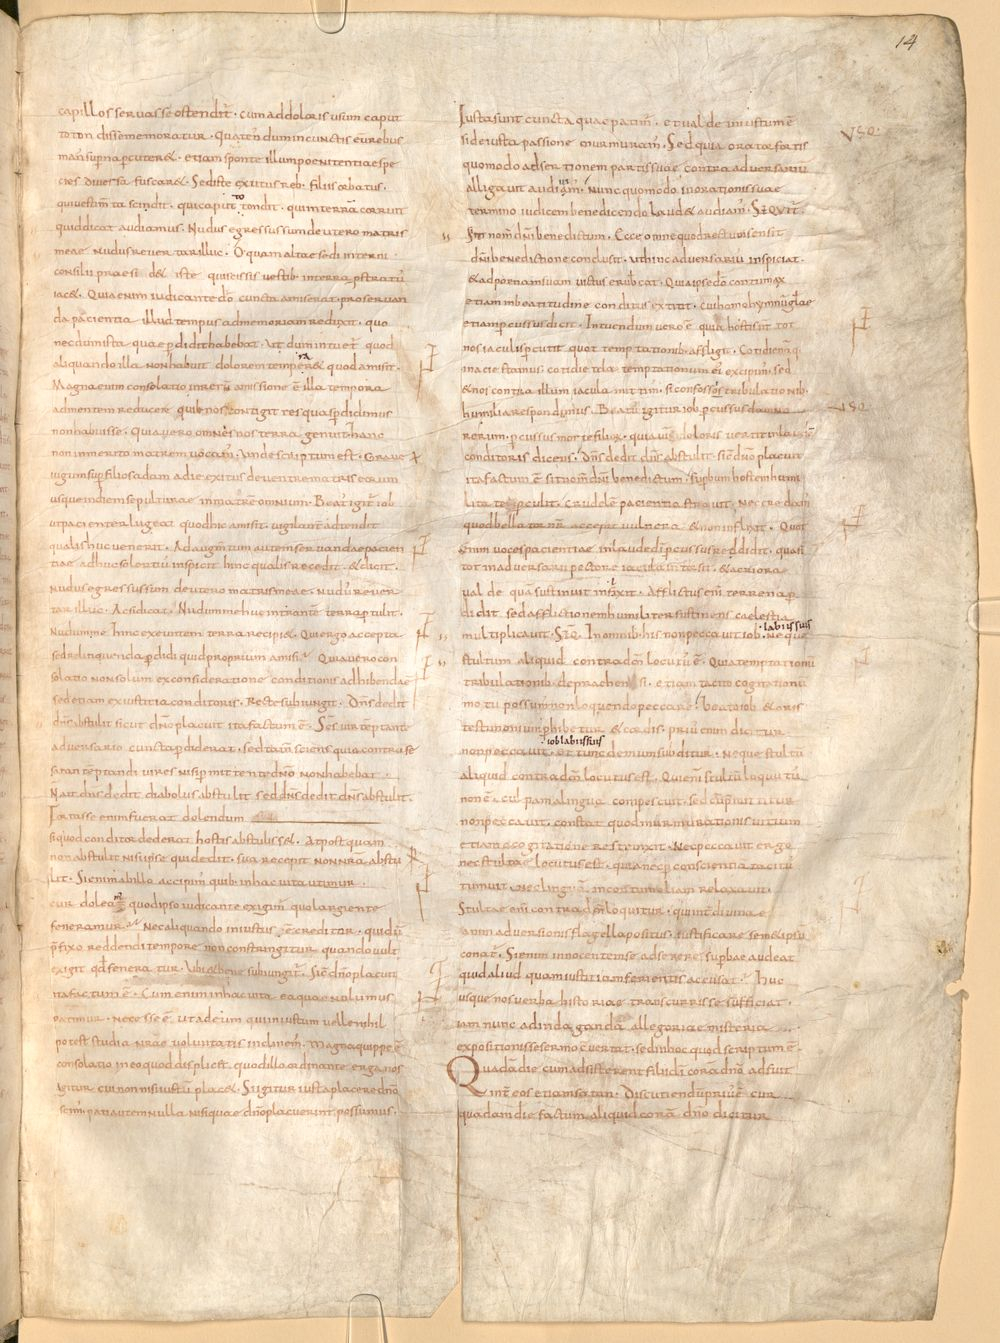 14
capillos servasse ostendit̄ · cum ad doloris usum caput
totondisse memoratur · Quatēn dum in cunctis eū rebus
man̄ supna pcuter& · etiam sponte illum poenitentiae spe
cies diversa fuscar& · Sed iste exutus reb· filiis orbatus ·
qui vestim̄ta scindit · qui caput totondit · qui in terrā corruit
quid dicat audiamus · Nudus egressus sum de utero matris
meae nudus revertar illuc · O quam alta sedi interni
consilii praesid& iste qui scissis vestib· in terra pstratū
iac& · Quia enim iudicante dō cuncta amiserat · pro servan
da pacientia illud tempus ad memoriam reduxit · quo
necdum ista quae pdidit habebat · Ut dum intuet̄ quod
aliquando illa non habuit dolorem temper& quod amisit ·
Magna eum consolatio in rerum amissione ē illa tempora
ad mentem reducere quib· nos contigit res quas pdidimus
non habuisse · Quia vero omnes nos terra genuit hanc
non inmerito matrem vocam̄ · Unde scriptum est · Grave
iugum sup filios adam a die exitus de ventre matris eorum
usque in diem sepulturae in matrē omnium · Beat' igit̄ iob
ut pacienter luge& quod hic amisit · vigilant̄ adtendit
qualis huc venerit · Ad augm̄tum autem servandae pacien
tiae adhuc sollertius inspicit hinc qualis recedit · & dicit ·
Nudus egressus sum de utero matris meae · Nudus rever
tar illuc · Ac si dicat · Nudum me huc intrantē terra ptulit ·
Nudum me hinc exeuntem terra recipi& · Qui ergo accepta
sed relinquenda pdidi quid proprium amisi · Quia vero con
solatio non solum ex consideratione conditionis adhibenda ē
sed etiam ex iustitia conditoris · Recte subiungit · Dn̄s dedit
dn̄s abstulit sicut dn̄o placuit ita factum ē · Sc̄s vir tēptante
adversario cuncta pdiderat · sed tam̄ sciens quia contra se
satan tēptandi vires nisi pmittente dn̄o non habebat ·
N ait dn̄s dedit diabolus abstulit sed dn̄s dedit dn̄s abstulit ·
Fortasse enim fuerat dolendum
si quod conditor dederat hostis abstuliss& · At postquam
non abstulit nisi ipse qui dedit · sua recepit non nr̄a abstu
lit · Si enim ab illo accipim̄ quib· in hac vita utimur ·
cur doleam̄ quod ipso iudicante exigim̄ quo largiente
foeneramur · Nec aliquando iniustus ē creditor · qui dū
p̄fixo reddendi tempore non constringitur quando vult
exigit qd feneratur · Ubi & bene subiungit̄ · Sic dn̄o placuit
ita factum ē · Cum enim in hac vita ea quae nolumus
patimur · Necesse ē ut ad eum qui iniustum velle nihil
potest studia nr̄ae voluntatis inclinem̄ · Magna quippe ē
consolatio in eo quod displicet · quod illo ordinante erga nos
agitur cui non nisi iustū plac& · Si igitur iusta placere dn̄o
scim̄ · pati autem nulla nisi quae dn̄o placuerint possumus ·
Iusta sunt cuncta quae patim̄ · et valde iniustum ē
si de iusta passione murmuram̄ · Sed quia orator fortis
quomodo adsertionem partis suae contra adversariū
alligavit audivim̄ · Nunc quomodo in orationis suae
termino iudicem benedicendo laud& audiam̄ ·
Sit nom̄ dn̄i benedictum · Ecce omne quod recturs sensit
dn̄i benedictione conclusit · ut hinc adversariu inspiciat ·
& ad poenam suam victus erubescat · Quia ipse dō contumax
etiam in beatitudine conditus extitit · cui homo hymnū glae
etiam pcussus dicit · Intuendum vero ē quia hostis nr̄ tot
nos iaculis pcutit quot temptationib· affligit · Cotidie n̄q·
in acie stamus · cotidie tela temptationum ei' excipim̄ · sed
& nos contra illum iacula mittim̄ · si confossos tribulationib·
humilia respondimus · Beat' igitur iob pcussus damno
rerum · pcussus morte filior̄ · quia vim doloris vertit in laudē
conditoris dicens · Dn̄s dedit dn̄s abstulit · sic dn̄o placuit
ita factum ē sit nom̄ dn̄i benedictum · Supbum hostem humi
litate pculit · Crudelē pacientia stravit · Nec credam̄
quod bellator nr̄ accepit vulnera & non inflixit · Quot
enim voces pacientiae in laude dī pcussus reddidit · quasi
tot in adversarii pectore iacula intorsit · & acriora
valde quā sustinuit inflixit · Afflictus em̄ terrena p
didit · sed afflictionem humiliter sustinens caelestia
multiplicavit · In omnib· his non peccavit iob · labiis suis neque
stultum aliquid contra dm̄ locutus ē · Quia temptationū
tribulationib· deprachensi · etiam tacito cogitationū
motu possum non loquendo peccare · beato iob & oris
testimonium phibetur & cordis · prius n̄m dicitur
non peccavit · iob labiis suis et tunc demum subditur · neque stultū
aliquid contra dm̄ locutus est · Qui enim stultū locutus
non ē · culpam a lingua compescuit · sed cū pmittitur
non peccavit · constat quod murmurationis vitium
etiam e cogitatione restrinxit · Nec peccavit ergo
nec stultae locutus est · quia nec p conscientia tacitū
tumuit · nec linguā in contumeliam relaxavit ·
Stultae em̄ contra dm̄ loquitur · qui int̄ divinae
animadversionis flagella positus · iustificare sem& ipsū
conat̄ · Si enim innocentem se adserere supbae audeat
quid aliud quam iustitiam ferientis accusat · Huc
usque nos verba historiae transcurrisse sufficiat ·
iam nunc ad indaganda allegoriae misteria
expositionis se sermo ē vertat · sed in hoc quod scriptum ē ·
Quadā die cum adsisterent filii dī corā dn̄o adfuit
int̄ eos etiam satan · Discutiendū prius ē cur
quadam die factum aliquid corā dn̄o dicitur